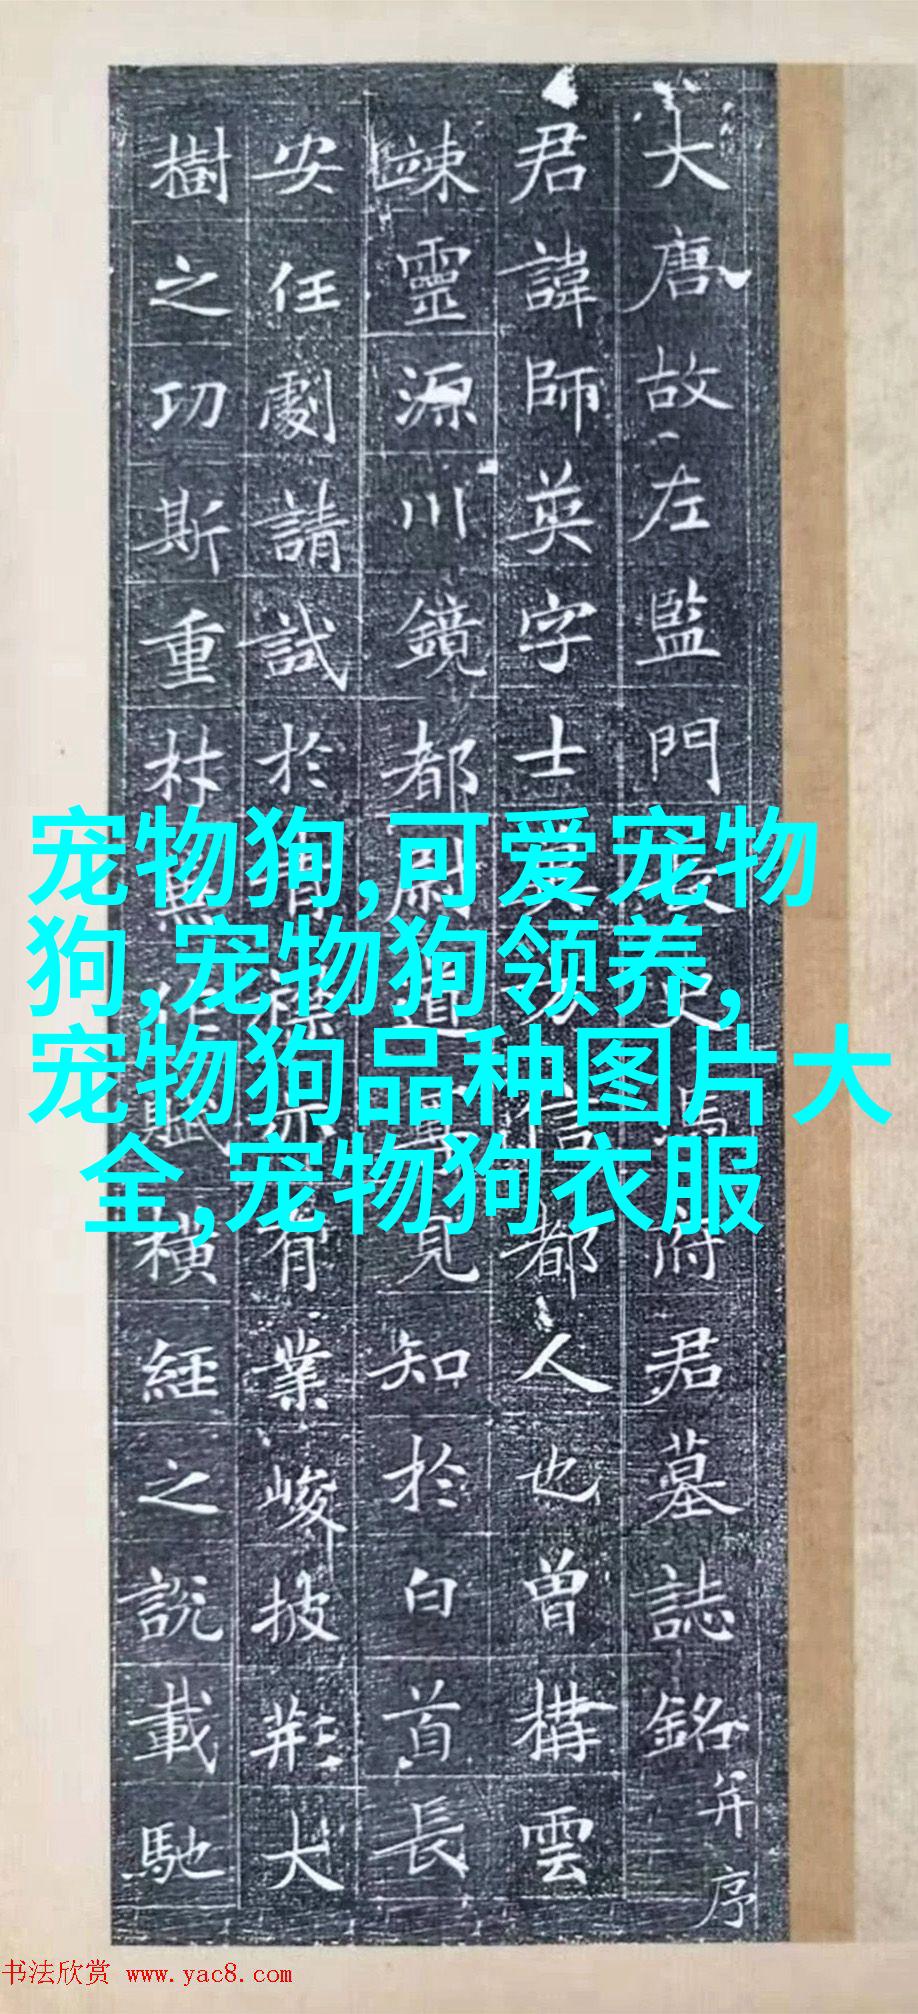 大唐故左監門
府君墓誌銘并序
君諱師英字士
都人也曾構雲
竦靈源川鏡都尉道
見知於白首長
安任劇請試於
有業峻披荊大
樹之功斯重杖
賦橫經之說載馳
宠物狗,可爱宠物
狗,宠物狗领养,
宠物狗品种图片大
全,宠物狗衣服
书法欣赏 www.yac8.com